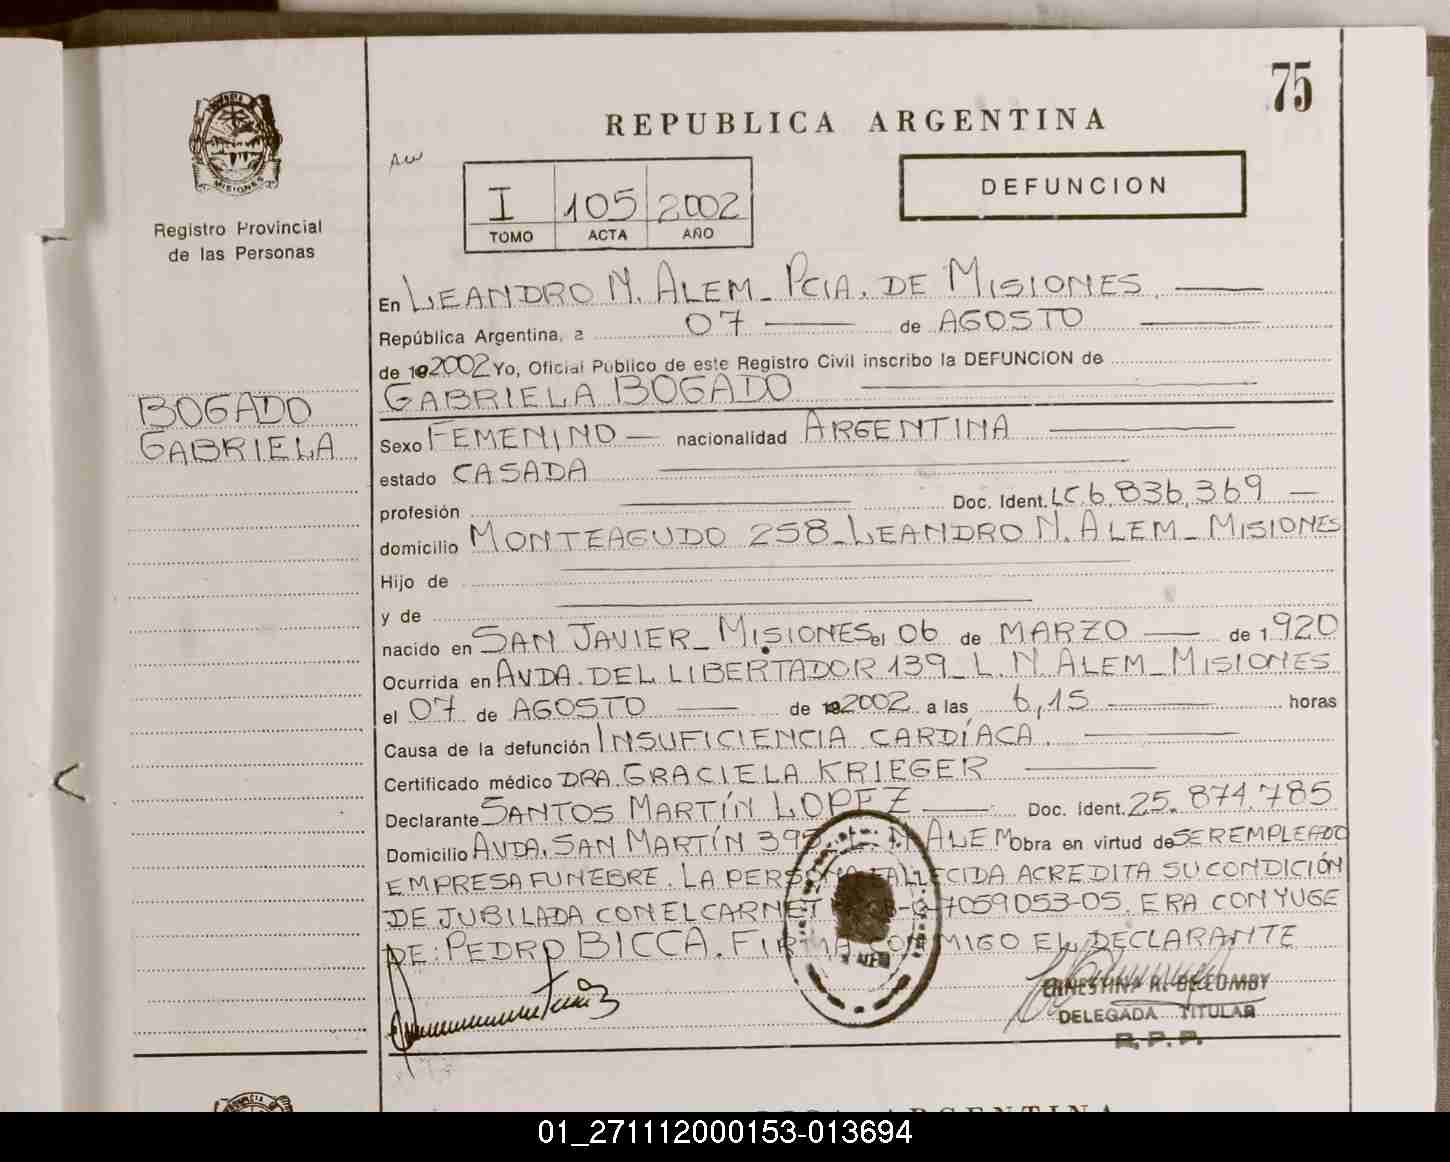 75
REPUBLICA ARGENTINA
MISIONES
Registro Provincial
de las Personas
I 105 2002
TOMO ACTA AÑO
DEFUNCION
En LEANDRO N. ALEM - PCIA. DE MISIONES
República Argentina, a 07 de AGOSTO
de 2002 Yo, Oficial Público de este Registro Civil inscribo la DEFUNCION de
GABRIELA BOGADO
BOGADO
GABRIELA
Sexo FEMENINO nacionalidad ARGENTINA
estado CASADA
profesión Doc. Ident. LC 6,836,369
domicilio MONTEAGUDO 258 - LEANDRO N. ALEM - MISIONES
Hijo de
y de
nacido en SAN JAVIER - MISIONES el 06 de MARZO de 1.920
Ocurrida en AVDA. DEL LIBERTADOR 139 - L. N. ALEM - MISIONES
el 07 de AGOSTO de 2002 a las 6,15 horas
Causa de la defunción INSUFICIENCIA CARDÍACA.
Certificado médico DRA. GRACIELA KRIEGER
Declarante SANTOS MARTÍN LOPEZ Doc. Ident. 25.874.785
Domicilio AVDA. SAN MARTÍN L. N. ALEM Obra en virtud de SER EMPLEADO
EMPRESA FUNEBRE. LA PERSONA FALLECIDA ACREDITA SU CONDICIÓN
DE JUBILADA CON EL CARNET 7059053-05. ERA CONYUGE
DE: PEDRO BICCA. FIRMA CONMIGO EL DECLARANTE
ERNESTINA R. DE LOMBY
DELEGADA TITULAR
R. P. P.
ARGENTINA
01_271112000153-013694